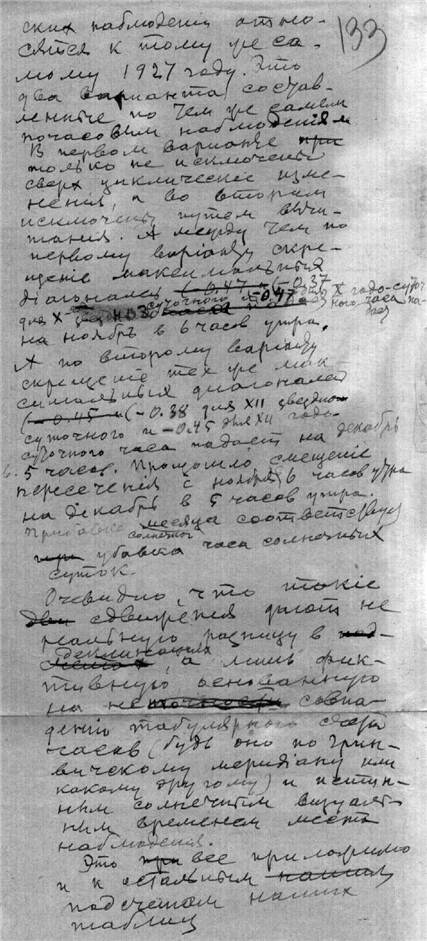 133
ских наблюденіи отно-
сятся к тому же са-
мому 1927 году. Это
два варианта состав-
ленные по тем же самым
почасовым наблюденіям
В первом варианте при
только не исключены
сверх циклическіе изме-
ненія, а во втором
исключены путем вычи-
танія. А между тем по
первому варіанту скре-
щеніе максимальных
діагоналей (-0.47 и (-0.37
для X звездно суточного и -0.47 для X годо-суточ
ного часа па-
дает
на ноябрь в 6 часов утра.
А по второму варіанту
скрещеніе тех же мак
симальных діагоналей
(-0.45 и (-0.38 для XII звездно
суточного и -0.45 для XII годо-
суточного часа падает на декабрь
5 часов. Произошло смещеніе
пересеченія с ноября 6 часов утра
на декабрь в 5 часов утра.
Прибавка месяца соответствует
солнечног
убавка часа солнечных
суток.
Очевидно, что такіе
сдвиженія дают не
реальную разницу в под-
деклинаціях
счетах, а лишь фик-
тивную основанную
на неточности совпа-
денію табулярного счета
часов (будь оно по Грин-
вичскому меридіану или
какому другому) и истин-
ным солнечным визуаль
ным временем места
наблюденія.
Это при все приложимо
и к остальным нашим
подсчетам наших
таблиц